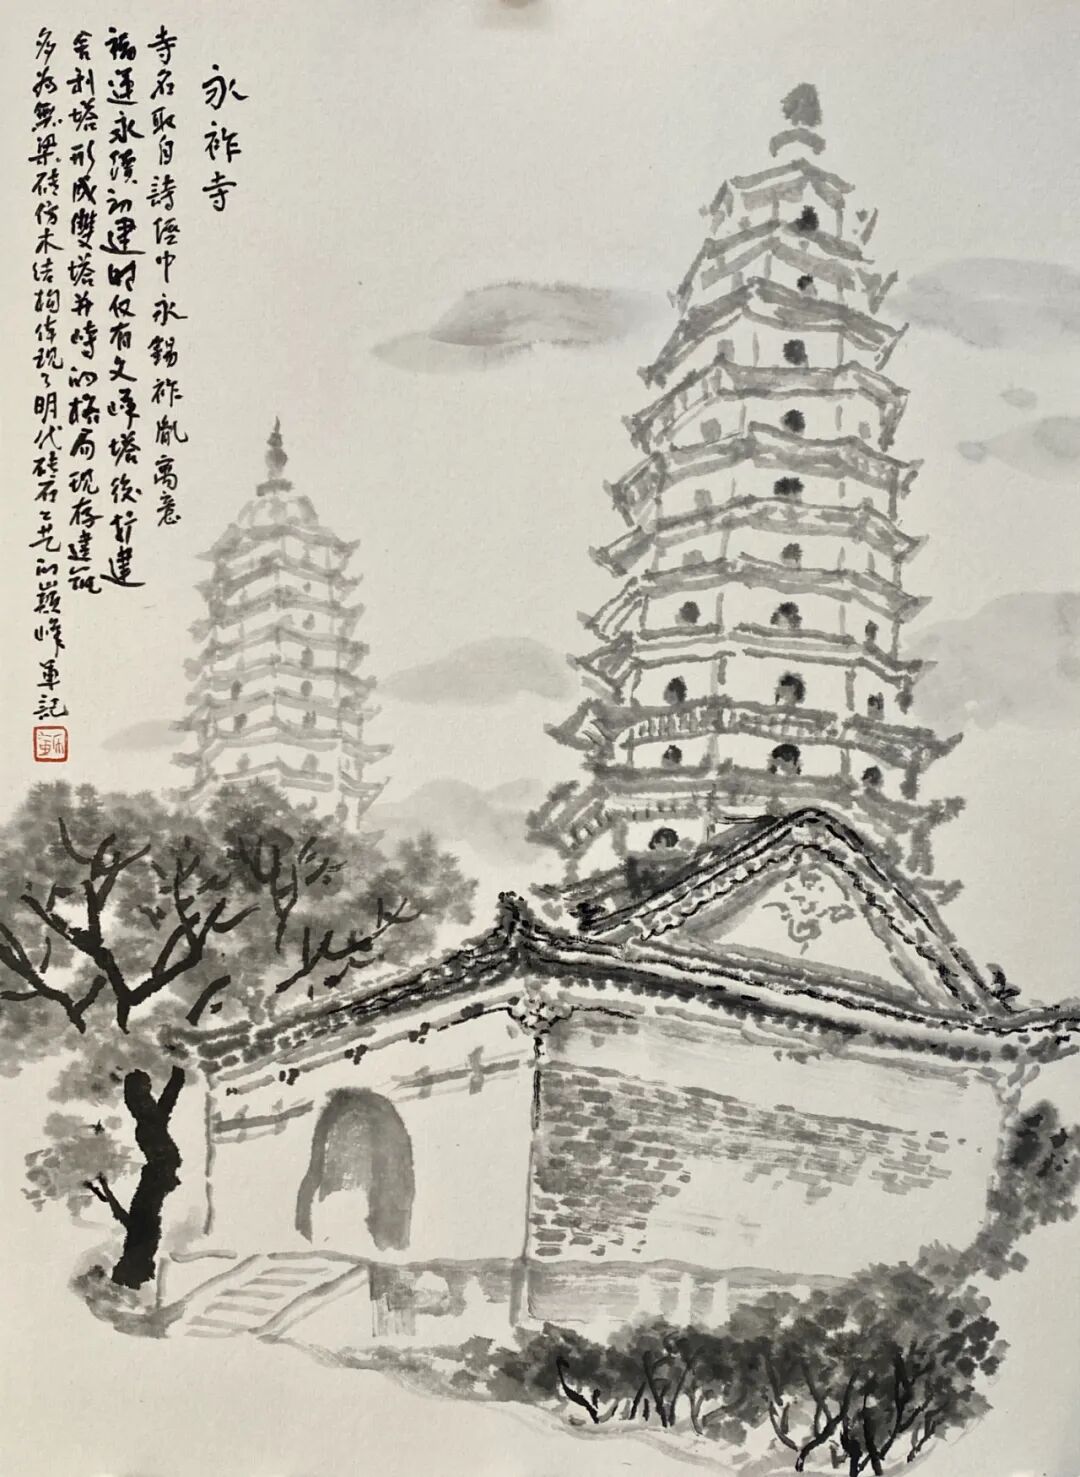 永祚寺
寺名取自詩經中永錫祚胤寓意
福運永續初建时仅有文峰塔後扩建
舍利塔形成雙塔并峙的格局现存建筑
多为無梁砖仿木结构体现了明代砖石工艺的巅峰 軍記